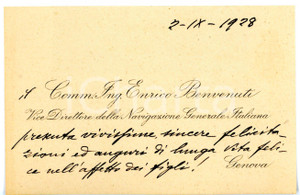 2-IX-1928
Il Comm. Ing. Enrico Benvenuti
Vice Direttore della Navigazione Generale Italiana
presenta vivissime, sincere felicita-
zioni ed auguri di lunga vita feli-
ce nell'affetto dei figli!
Genova